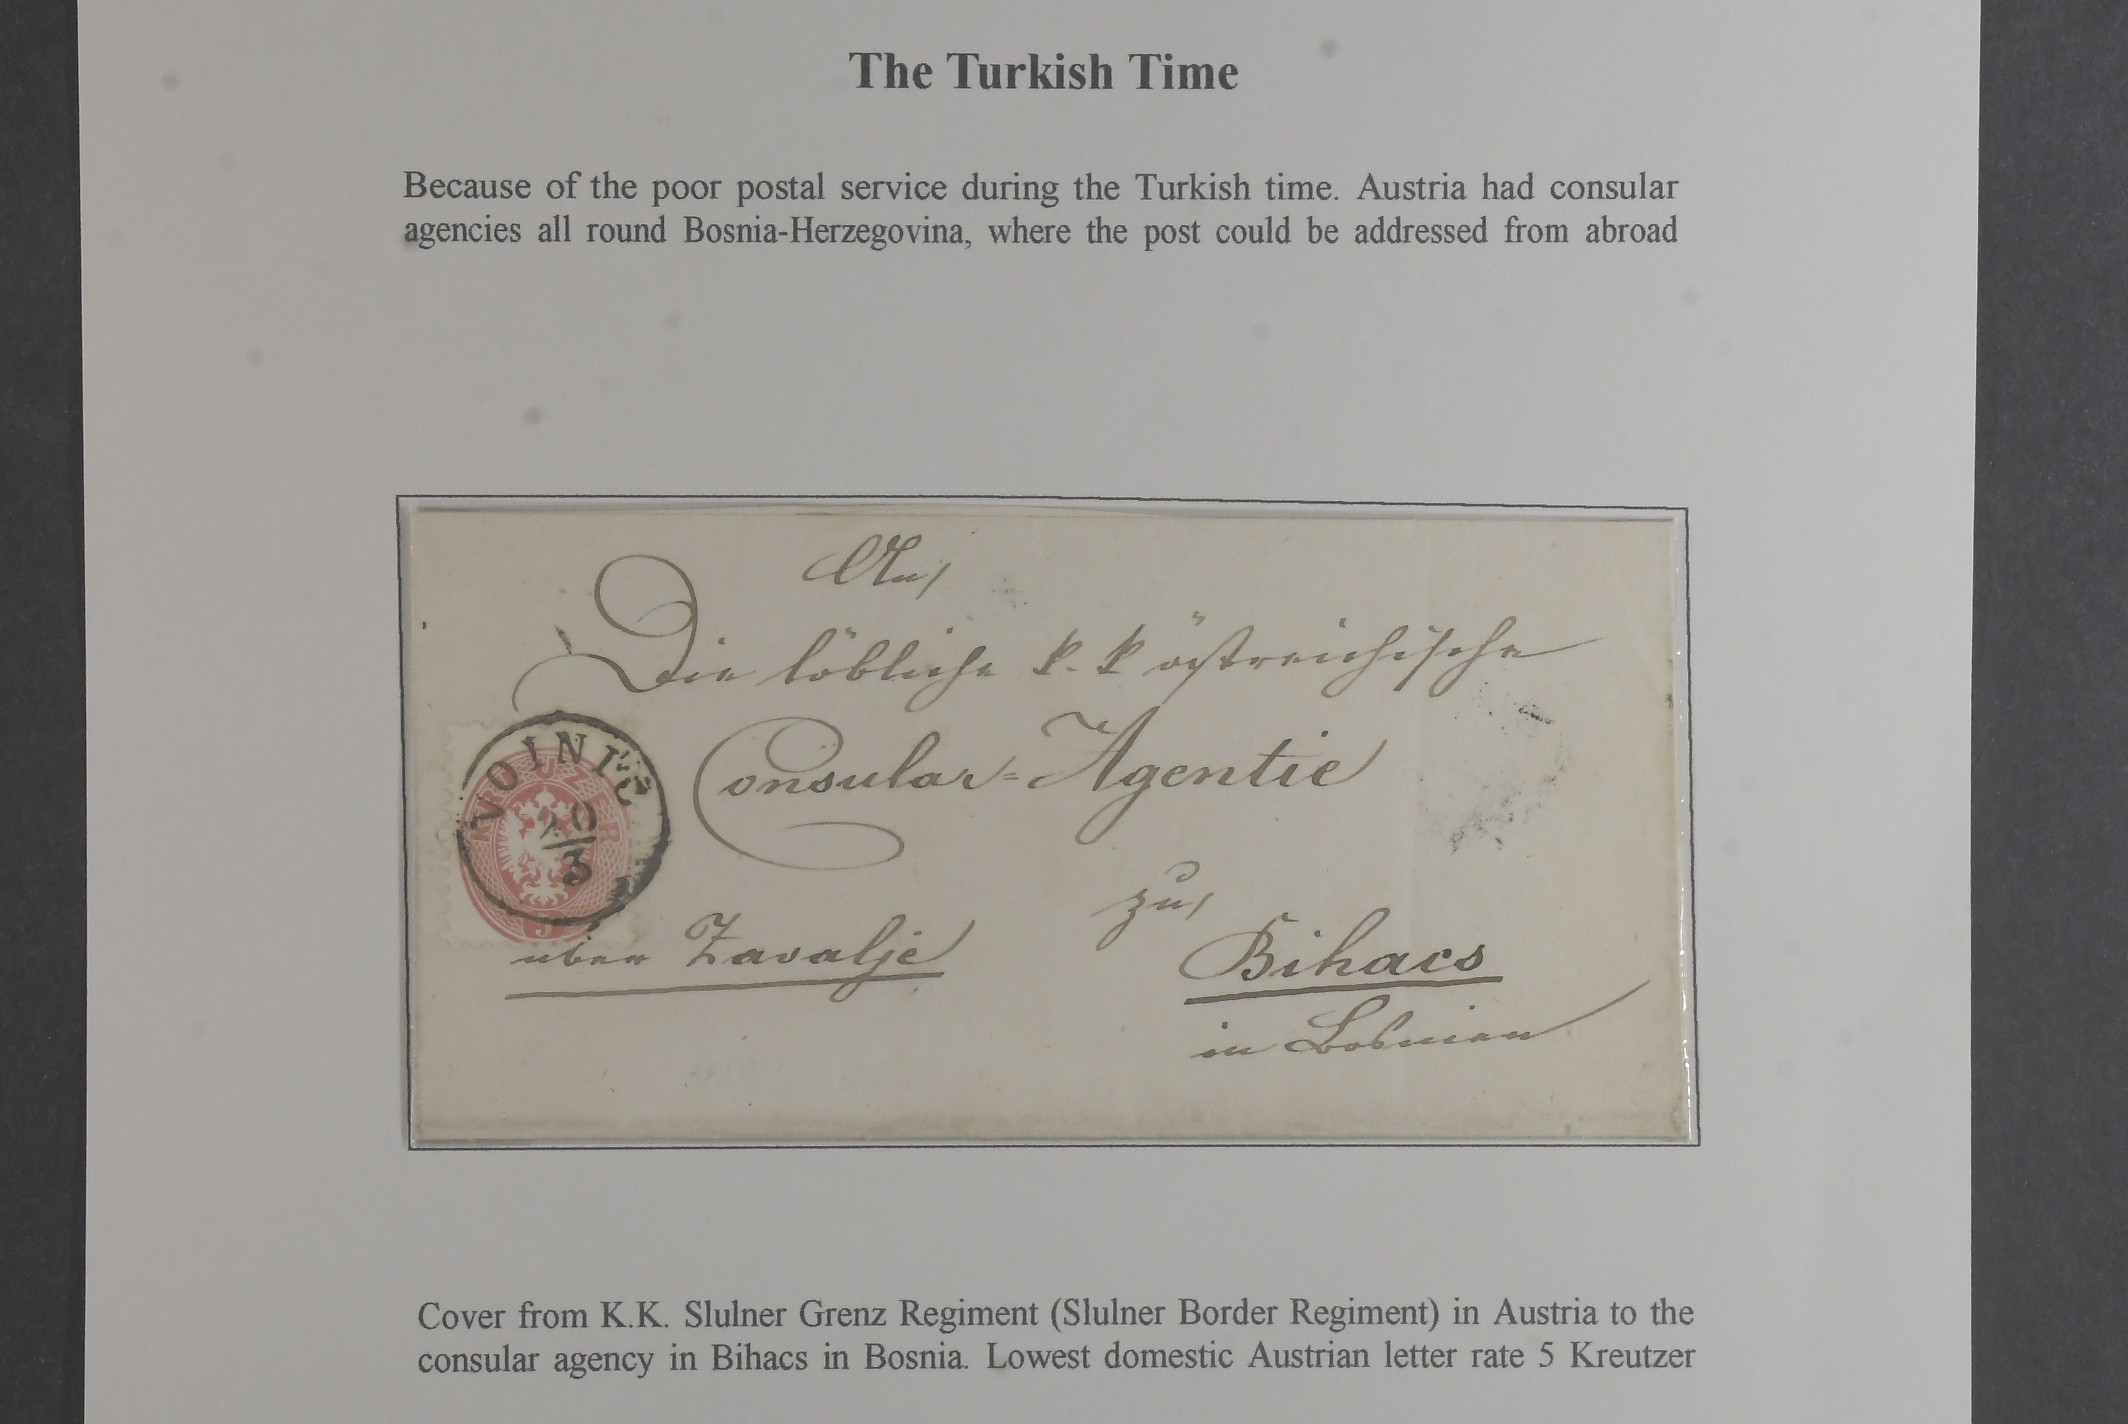 The Turkish Time
Because of the poor postal service during the Turkish time. Austria had consular
agencies all round Bosnia-Herzegovina, where the post could be addressed from abroad
An/
Die löbliche k. k östreichische
Consular=Agentie
VOINIĆ
20
3
KREUZER
5
zu/
über Zavalje
Bihacs
in Bosnien
Cover from K.K. Slulner Grenz Regiment (Slulner Border Regiment) in Austria to the
consular agency in Bihacs in Bosnia. Lowest domestic Austrian letter rate 5 Kreutzer